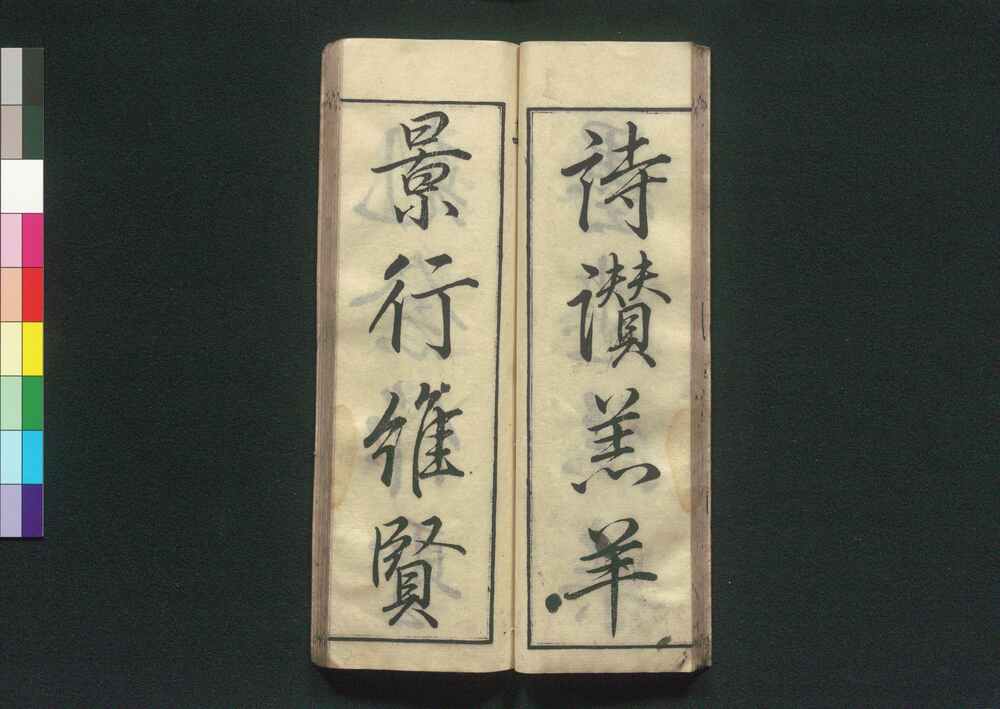 詩讃羔羊
景行維賢